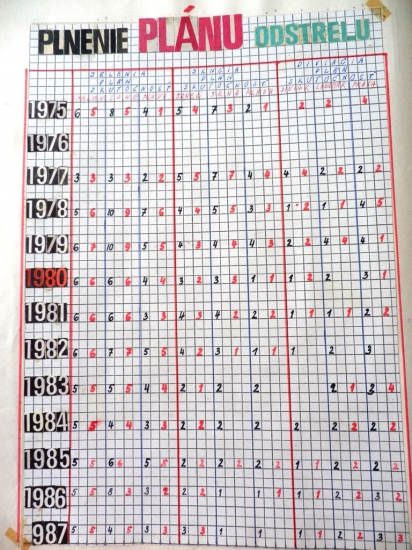 PLNENIE PLÁNU ODSTRELU
JELENIA SRNČIA DIVIAČIA
PLÁN PLÁN PLÁN
SKUTOČNOSŤ SKUTOČNOSŤ SKUTOČNOSŤ
JELEŇ LAŇ MLAĎ SRNEC SRNA MLAĎ DIVIAK LANŠIAK PRASA
1975 6 5 8 5 4 1 5 4 7 3 2 1 2 2 4
1976
1977 3 3 3 3 2 2 5 5 7 7 4 4 4 4 2 2 2 2
1978 5 6 10 9 7 6 4 4 5 5 3 3 1 2 1 1 4 5
1979 6 7 10 9 5 5 4 3 4 4 4 3 2 2 4 4 4 1
1980 6 6 6 6 4 4 3 2 3 3 1 1 1 2 2 3 1
1981 6 6 6 6 3 3 4 3 4 2 2 2 1 1 1 1 2 2
1982 6 6 7 7 5 5 4 2 3 1 1 1 1 2 3
1983 5 5 5 5 4 4 2 1 2 2 2 1 3 4
1984 5 5 4 4 3 3 2 2 2 2 2 2 2 2 2
1985 5 5 6 6 5 5 2 2 2 2 2 2 1 1 2 2 2 2
1986 5 5 8 3 3 2 2 2 1 1 1 1 1 2 2 3 2
987 5 5 4 5 3 3 3 3 1 1 1 1 1 2 2 3 3